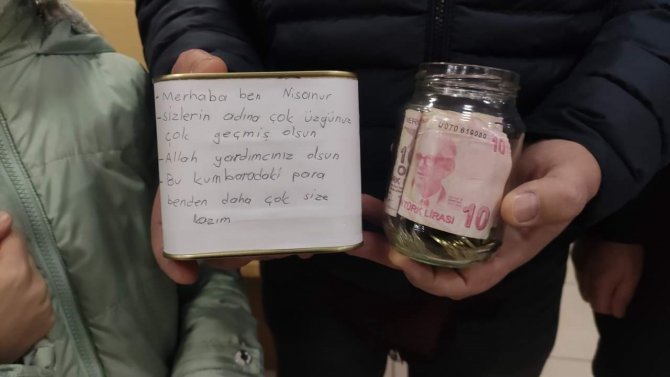 - Merhaba ben Nisanur
- sizlerin adına çok üzgünüz
çok geçmiş olsun
- Allah yardımcınız olsun
- Bu kumbaradaki para
benden daha çok size
lazım
10
TÜRK LİRASI 10